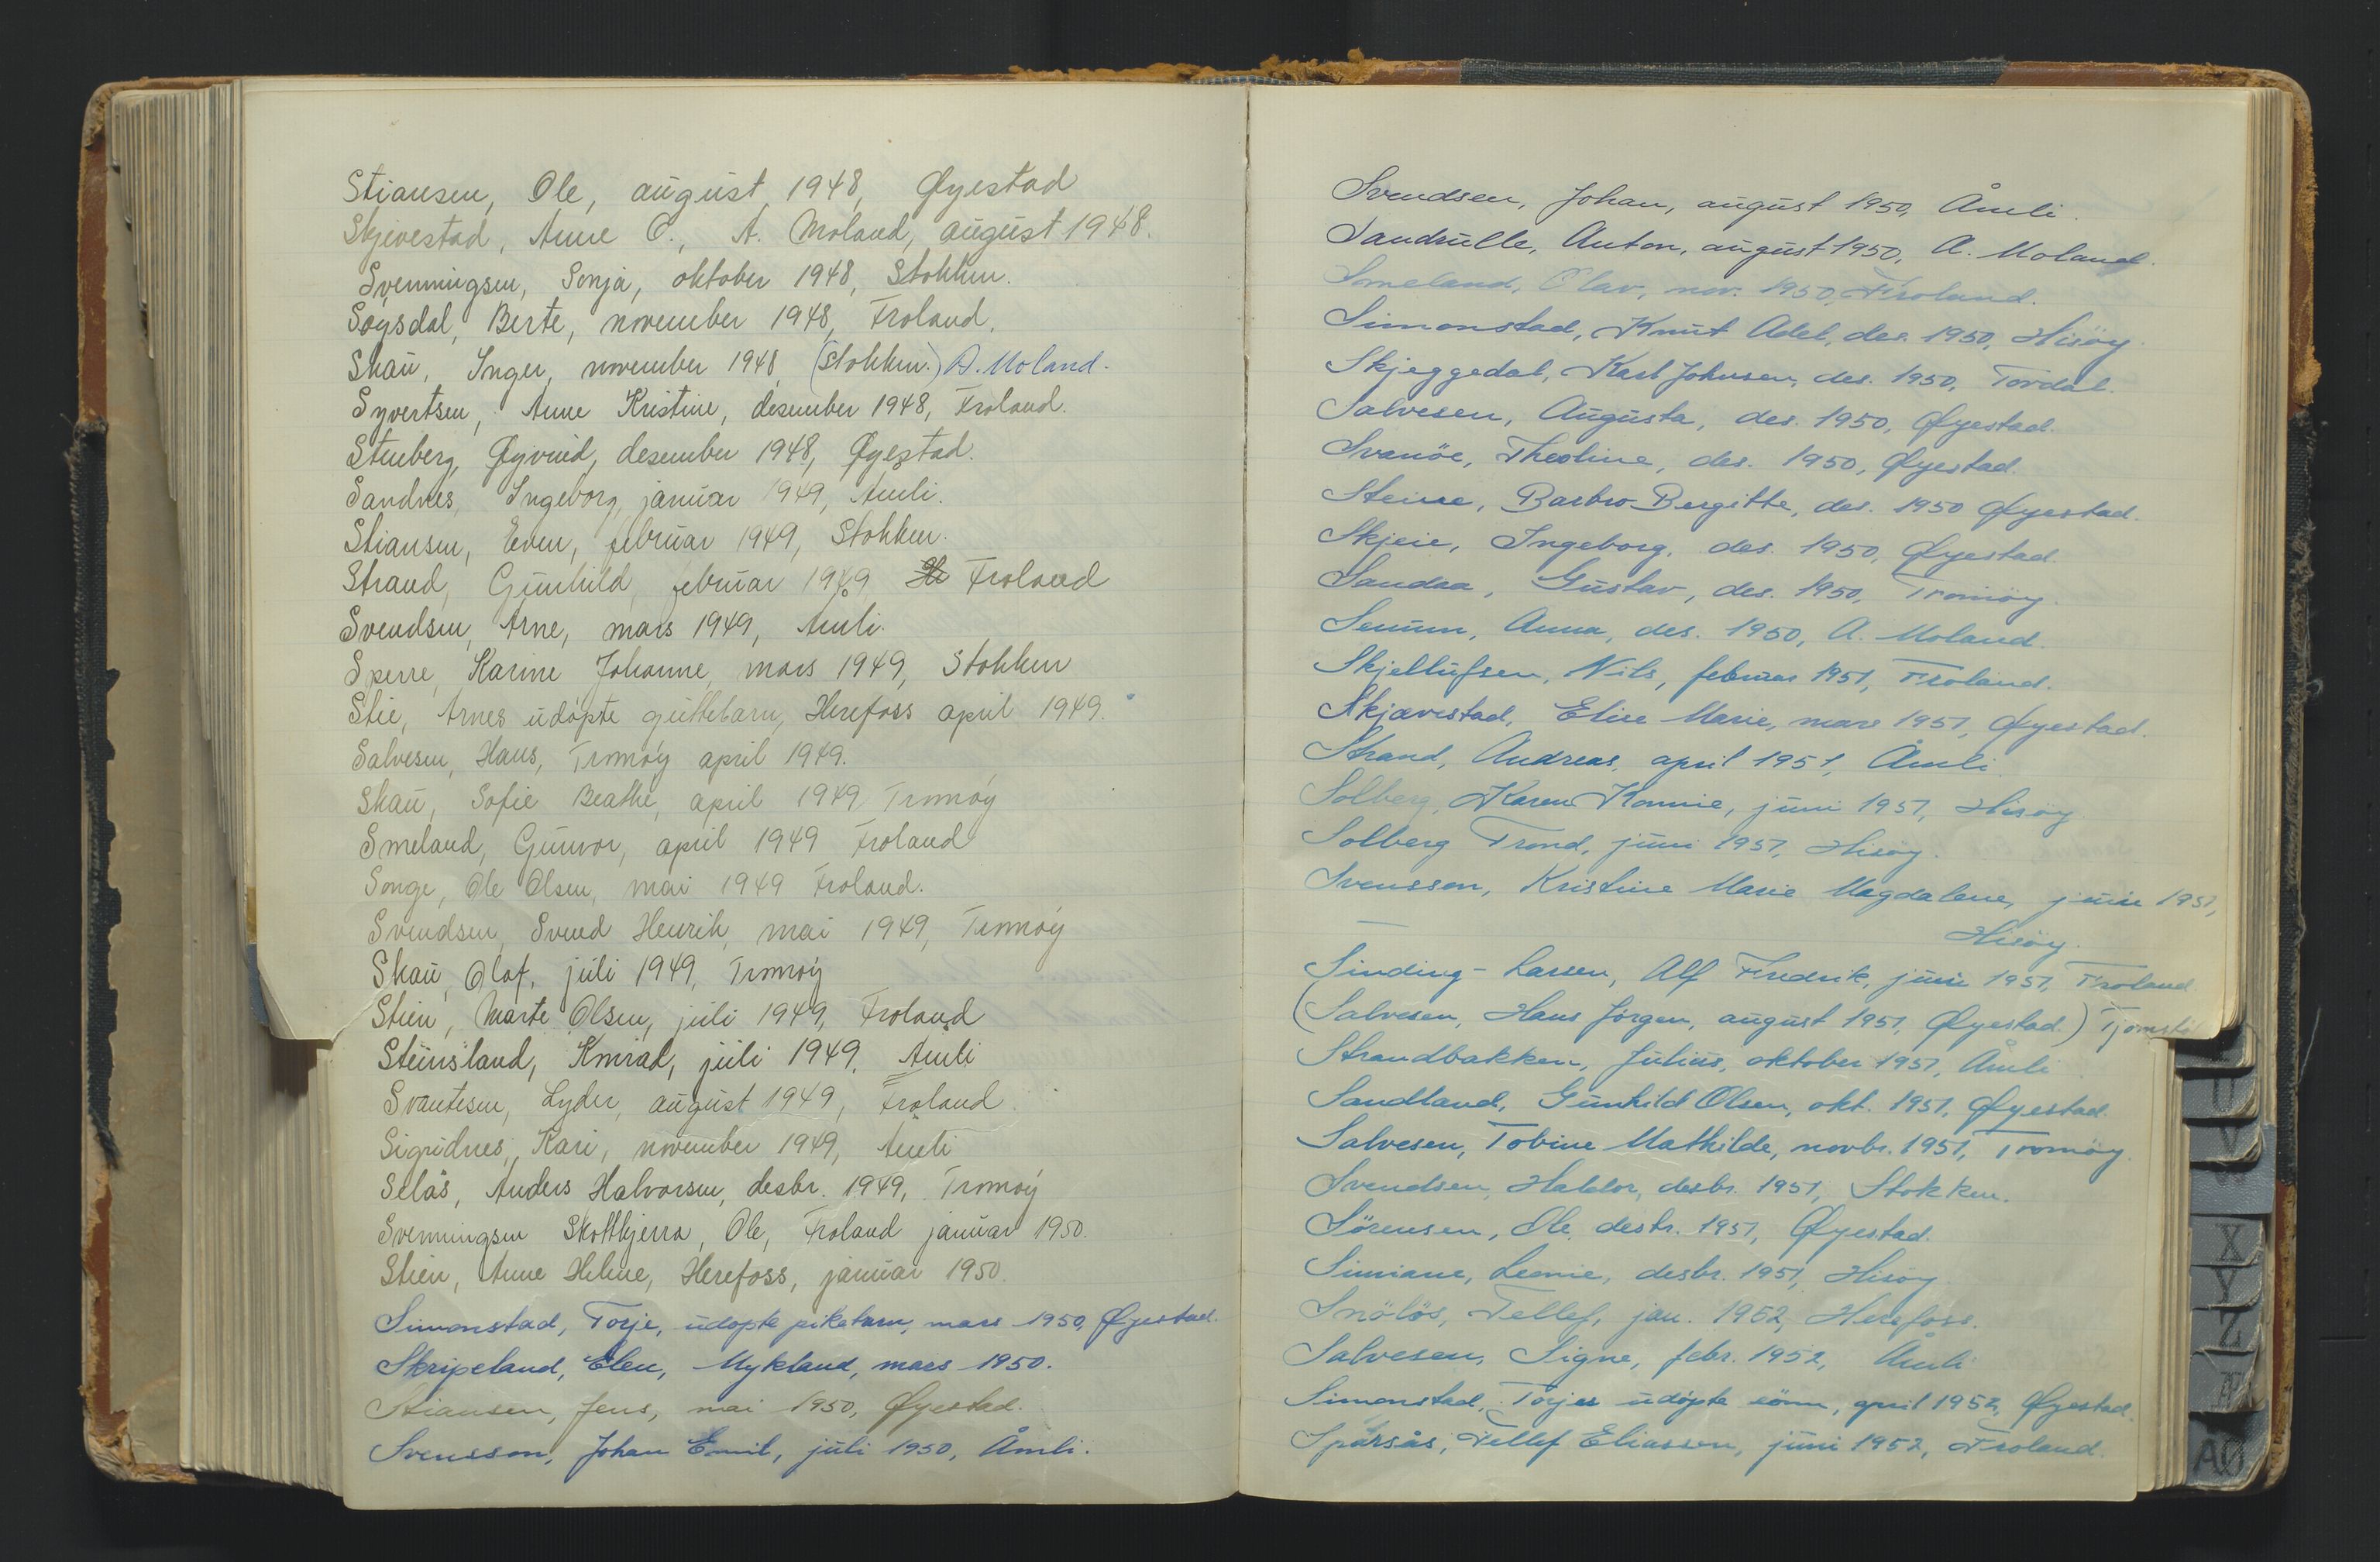 Stiansen, Ole, august 1948, Øyestad
Skjevestad, Anne O., A. Moland, august 1948.
Svenningsen, Sonja, oktober 1948, Stokken.
Søgsdal, Berte, november 1948, Froland.
Skau, Inger, november 1948 (Stokken.) A. Moland.
Syvertsen, Anne Kristine, desember 1948, Froland.
Stenberg, Øyvind, desember 1948, Øyestad.
Sandnes, Ingeborg, januar 1949, Åmli.
Stiansen, Even, februar 1949, Stokken.
Strand, Gunhild, februar 1949 Froland
Svendsen, Arne, mars 1949, Åmli.
Sperre, Karine Johanne, mars 1949, Stokken
Stie, Arnes udöpte guttebarn, Herefoss april 1949.
Salvesen, Hans, Tromöy april 1949.
Skau, Sofie Beathe, april 1949 Tromöy
Smeland, Gunvor, april 1949 Froland
Songe, Ole Olsen, mai 1949 Froland.
Svendsen, Svend Henrik, mai 1949, Tromöy
Skau, Olaf, juli 1949, Tromöy
Stien, Marte Olsen, juli 1949, Froland
Steinsland, Konrad, juli 1949, Åmli
Svantesen, Lyder, august 1949, Froland
Sigridnes, Kari, november 1949, Åmli
Selås, Anders Halvorsen, desbr. 1949, Tromöy
Svenningsen Skottkjerra, Ole, Froland januar 1950.
Stien, Anne Heline, Herefoss, januar 1950.
Simonstad, Torje, udöpte pikebarn, mars 1950, Øyestad.
Skripeland, Elen, Mykland, mars 1950.
Stiansen, Jens, mai 1950, Øyestad.
Svensson, Johan Emil, juli 1950, Åmli.
Svendsen, Johan, august 1950, Åmli.
Sandrulle, Anton, august 1950, A. Moland.
Smeland, Olav, nov. 1950, Froland.
Simonstad, Knut Adel, des. 1950, Hisöy.
Skjeggedal, Karl Johnsen, des. 1950, Tovdal.
Salvesen, Augusta, des. 1950, Øyestad.
Svanöe, Theoline, des. 1950, Øyestad.
Steine, Barbro Bergitte, des. 1950 Øyestad.
Skjeie, Ingeborg, des. 1950, Øyestad.
Sandaa, Gustav, des. 1950, Tromöy.
Senum, Anna, des. 1950, A. Moland.
Skjellufsen, Nils, februar 1951, Froland.
Skjævestad, Elise Marie, mars 1951, Øyestad.
Strand, Andreas, april 1951, Åmli
Solberg, Karen Konnie, juni 1951, Hisöy
Solberg Trond, juni 1951, Hisöy.
Svensson, Kristine Marie Magdalene, juni 1951,
Hisöy.
Sinding-Larsen, Alf Fredrik, juni 1951, Froland.
(Salvesen, Hans Jörgen, august 1951, Øyestad.)
Strandbakken, Julius, oktober 1951, Åmli
Sandland, Gunhild Olsen, okt. 1951, Øyestad.
Salvesen, Tobine Mathilde, novbr. 1951, Tromöy.
Svendsen, Haldor, desbr. 1951, Stokken.
Sörensen, Ole, desbr. 1951, Øyestad.
Simiane, Leonie, desbr. 1951, Hisöy
Snölös, Tellef, jan. 1952, Herefoss.
Salvesen, Signe, febr. 1952, Åmli
Simonstad, Torjes udöpte sönn, april 1952, Øyestad.
Spærsås, Tellef Eliassen, juni 1952, Froland.
U
V
X
Y
Z
Æ
AØ